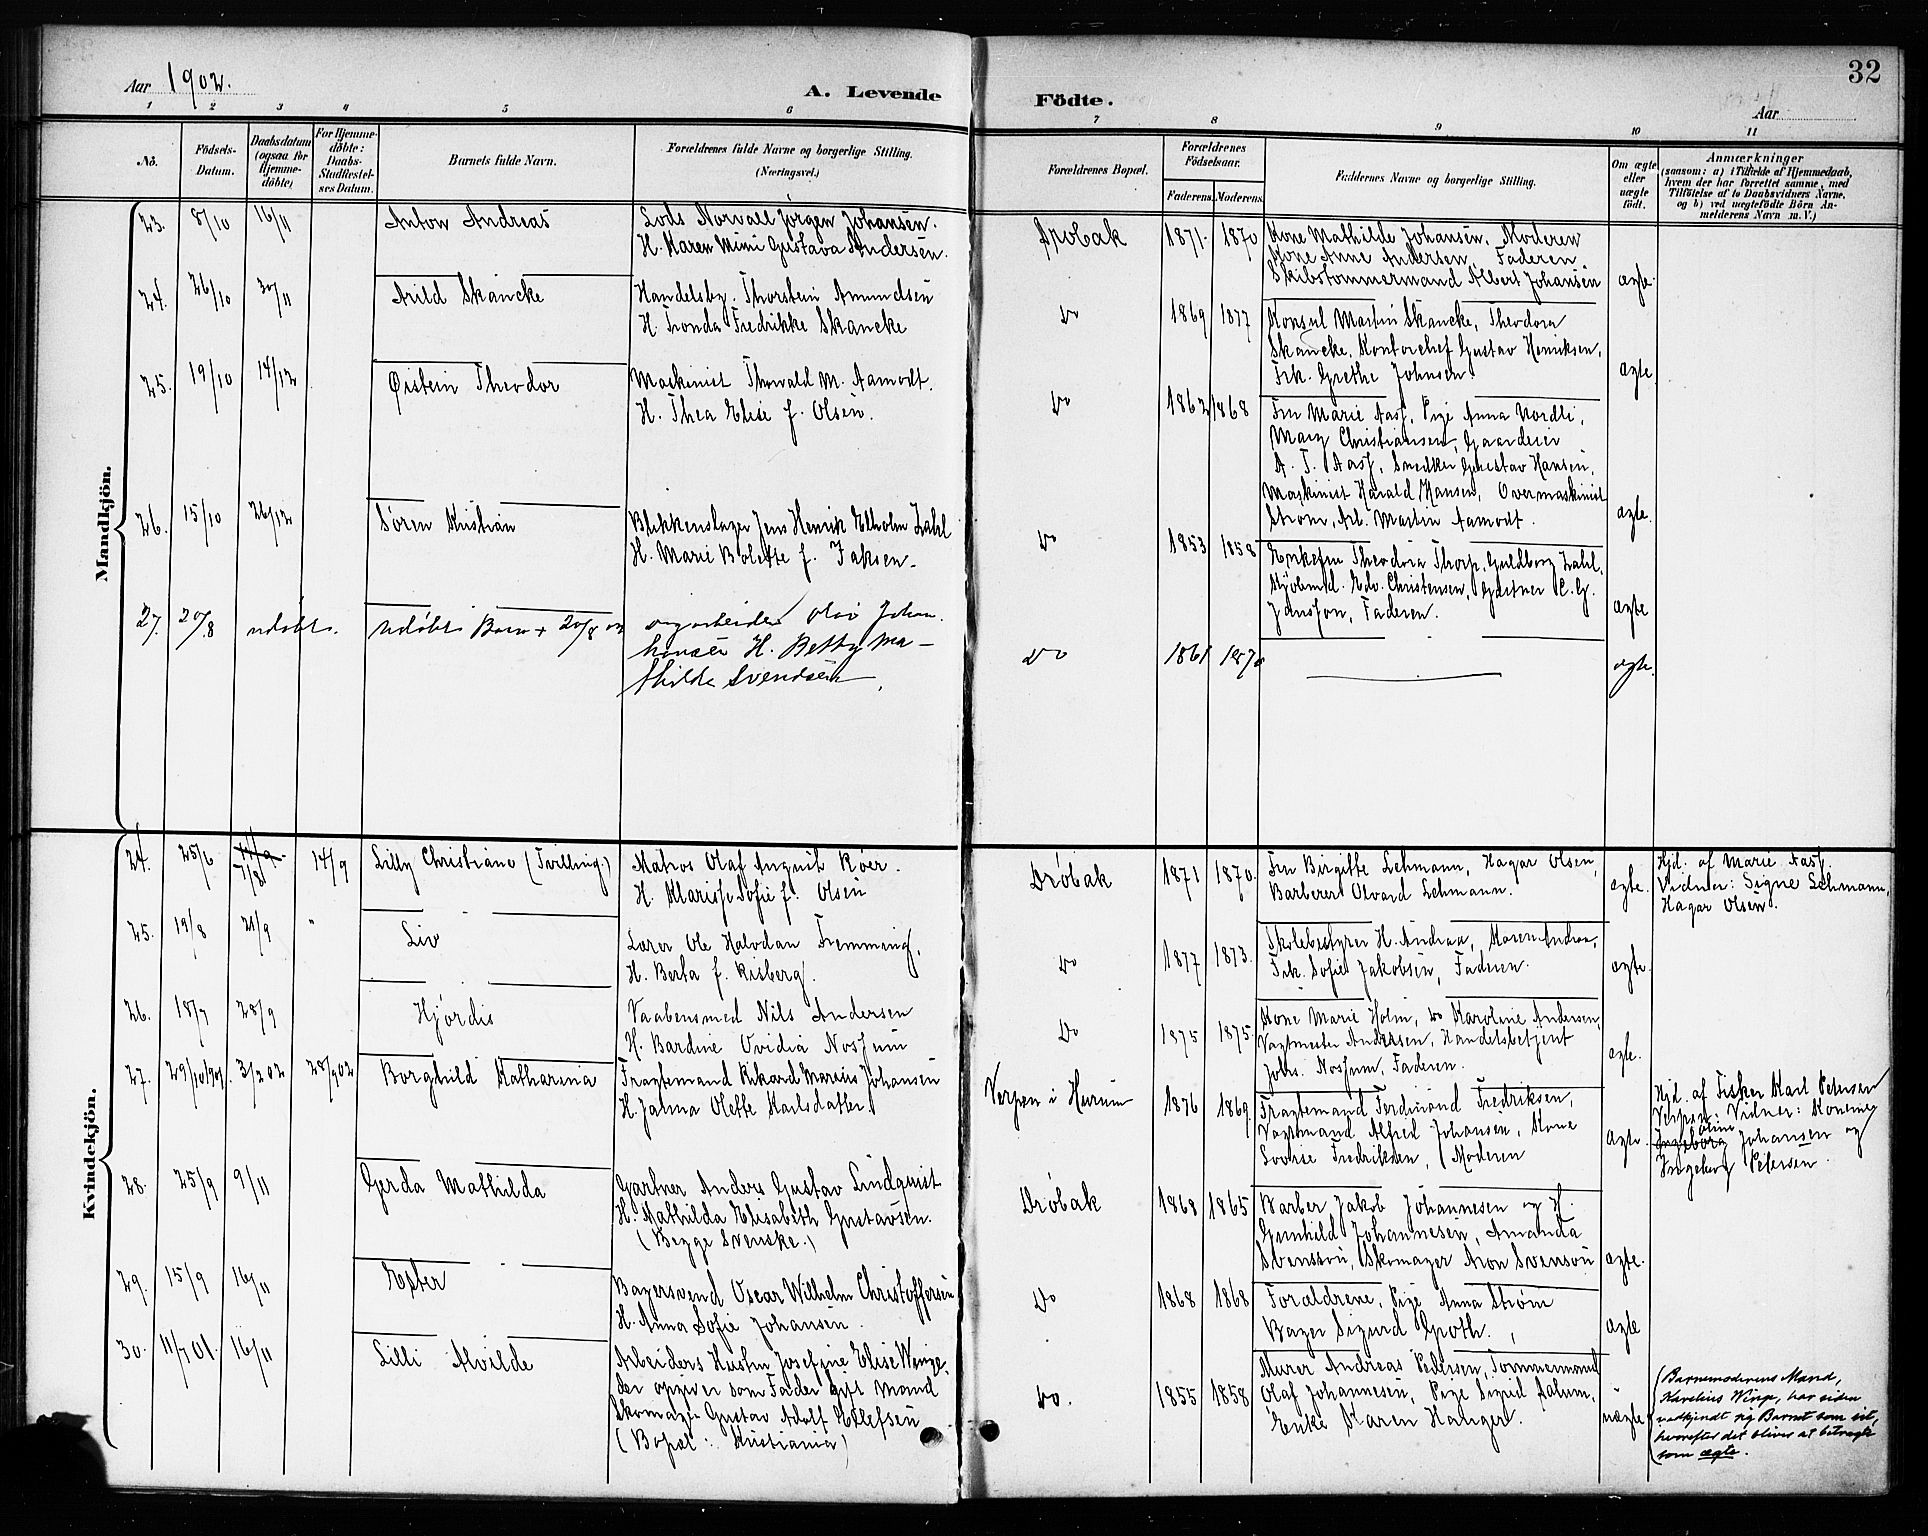 Aar 1902.
A. Levende
Födte.
Aar
32
1 2 3 4 5 6 7 8 9 10 11
No.
Födsels-Datum.
Daabsdatum (ogsaa for Hjemme-döbte)
For Hjemme-döbte: Daabs-Stadfæstel-ses Datum.
Barnets fulde Navn.
Forældrenes fulde Navne og borgerlige Stilling. (Næringsvei.)
Forældrenes Bopæl.
Forældrenes Födselsaar.
Faderens. Moderens.
Faddernes Navne og borgerlige Stilling.
Om ægte eller uægte födt.
Anmærkninger (saasom: a) i Tilfælde af Hjemmedaab, hvem der har forrettet samme, med Tilföielse af to Daabsvidners Navne, og b) ved uægtefödte Börn An-melderens Navn m. V.)
Mandkjön.
23. 8/10 16/11 Anton Andreas
Lods Norvall Jørgen Johansen.
H. Karen Mimi Gustava Andersen.
Drøbak 1871. 1870
Kone Mathilde Johansen, Moderen
Kone Anne Andersen, Faderen
Skibstømmermand Albert Johansen
ægte.
24. 26/10 30/11 Arild Skancke
Handelsbg. Thorstein Amundsen
H. Tronda Fredrikke Skancke
Do 1869 1877
Konsul Martin Skancke, Theodora
Skancke, Kontorchef Gustav Henriksen,
Frk. Grethe Johnsen.
ægte.
25. 19/10 14/12 Øistein Theodor
Maskinist Thorvald M. Aamodt.
H. Thea Elise f. Olsen.
Do 1862 1868
Fru Marie Aas, Pige Anna Nordli,
Mary Christiansen, Gaardeier
A. T. Aas, Snedker Gustav Hansen,
Maskinist Harald Hansen, Overmaskinist
Strøm, Arb. Martin Aamodt.
ægte.
26. 15/10 26/12 Søren Kristian
Blikkenslager Jens Henrik Elholm Zahl
H. Marie Bolette f. Faksen.
Do 1853 1858
Enkefru Theodora Thorp, Guldborg Zahl,
Kjøbmd. Edv. Christensen, Gartner C. G.
Jansson, Faderen.
ægte
27. 20/8 udøbt. udøbt Barn + 20/8 02
Olai Johan-
hansen H. Betty Ma-
thilde Svendsen.
Do 1861 1870
ægte.
Kvindekjön.
24. 25/6 7/8 14/9 Lilly Christiane (Tvilling.)
Matros Olaf August Røer.
H. Klarisse Sofie f. Olsen
Drøbak 1871 1870.
Fru Birgitte Lehmann, Hagar Olsen,
Barberer Olvard Lehmann.
ægte.
Hjd. af Marie Aas.
Vidner: Signe Lehmann,
Hagar Olsen.
25. 19/8 21/9 " Liv
Lærer Ole Halvdan Fremming,
H. Berta f. Risberg.
Do 1877 1873.
Skolebestyrer H. Andraa, Maren Andraa,
Frk. Sofie Jakobsen, Faderen.
ægte.
26. 18/7 28/9 Hjørdis
Vaabensmed Nils Andersen
H. Bardine Ovidia Nossum
Do 1875 1875.
Kone Marie Holm, do Karoline Andersen,
Vagtmester Andersen, Handelsbetjent
Johs. Nossum, Faderen.
ægte.
27. 29/10 1901. 3/2 02 28/9 02 Borghild Katharina
Fragtemand Rikard Marius Johansen
H. Jalma Olette Karlsdatter
Verpen i Hurum 1876 1869
Fragtemand Ferdinand Fredriksen,
Vagtmand Alfred Johansen, Kone
Lovise Fredriksen, Moderen
ægte.
Hjd. af Fisker Karl Petersen
Verpen: Vidner: Konerne
Oline
Ingeborg Johansen og
Ingeborg Petersen.
28. 25/9 9/11 Gerda Mathilda
Gartner Anders Gustav Lindquist
H. Mathilda Elisabeth Gustavsen.
(Begge Svenske.)
Drøbak 1868 1865
Barber Jakob Johannesen og H.
Gunhild Johannesen, Amanda
Svensson, Skomager Aron Svenson
ægte.
29. 15/9 16/11 Ester
Bagersvend Oscar Wilhelm Christoffersen
H. Anna Sofie Johansen.
Do 1868 1868
Forældrene, Pige Anna Strøm
Bager Sigurd Groth.
ægte
30. 11/7 01. 16/11 Lilli Alvilde
Arbeiders Hustru Josefine Elise Winge,
der opgiver som Fader gift Mand
Skomager Gustav Adolf Ellefsen
(Bopæl: Kristiania)
Do. 1855 1858
Murer Andreas Pedersen, Tømmermand
Olaf Johannesen, Pige Sigrid Aalum,
Enke Karen Haugen.
uægte
(Barnemoderens Mand,
Karelius Winge, har siden
vedkjendt sig Barnet som sit,
hvorefter det bliver at betragte
som ægte.